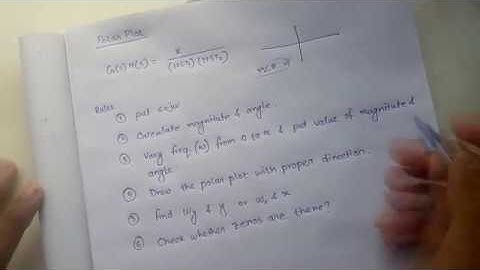 Polar Plot
G(s)H(s) = K / (1+sT1)(1+sT2)
Rules
① put s=jω
② Calculate magnitude & angle.
③ Vary freq.(ω) from 0 to ∝ & put value of magnitude &
angle
⑤ Draw the polar plot with proper direction.
find & y or & x
⑥ Check whether zeros are there?